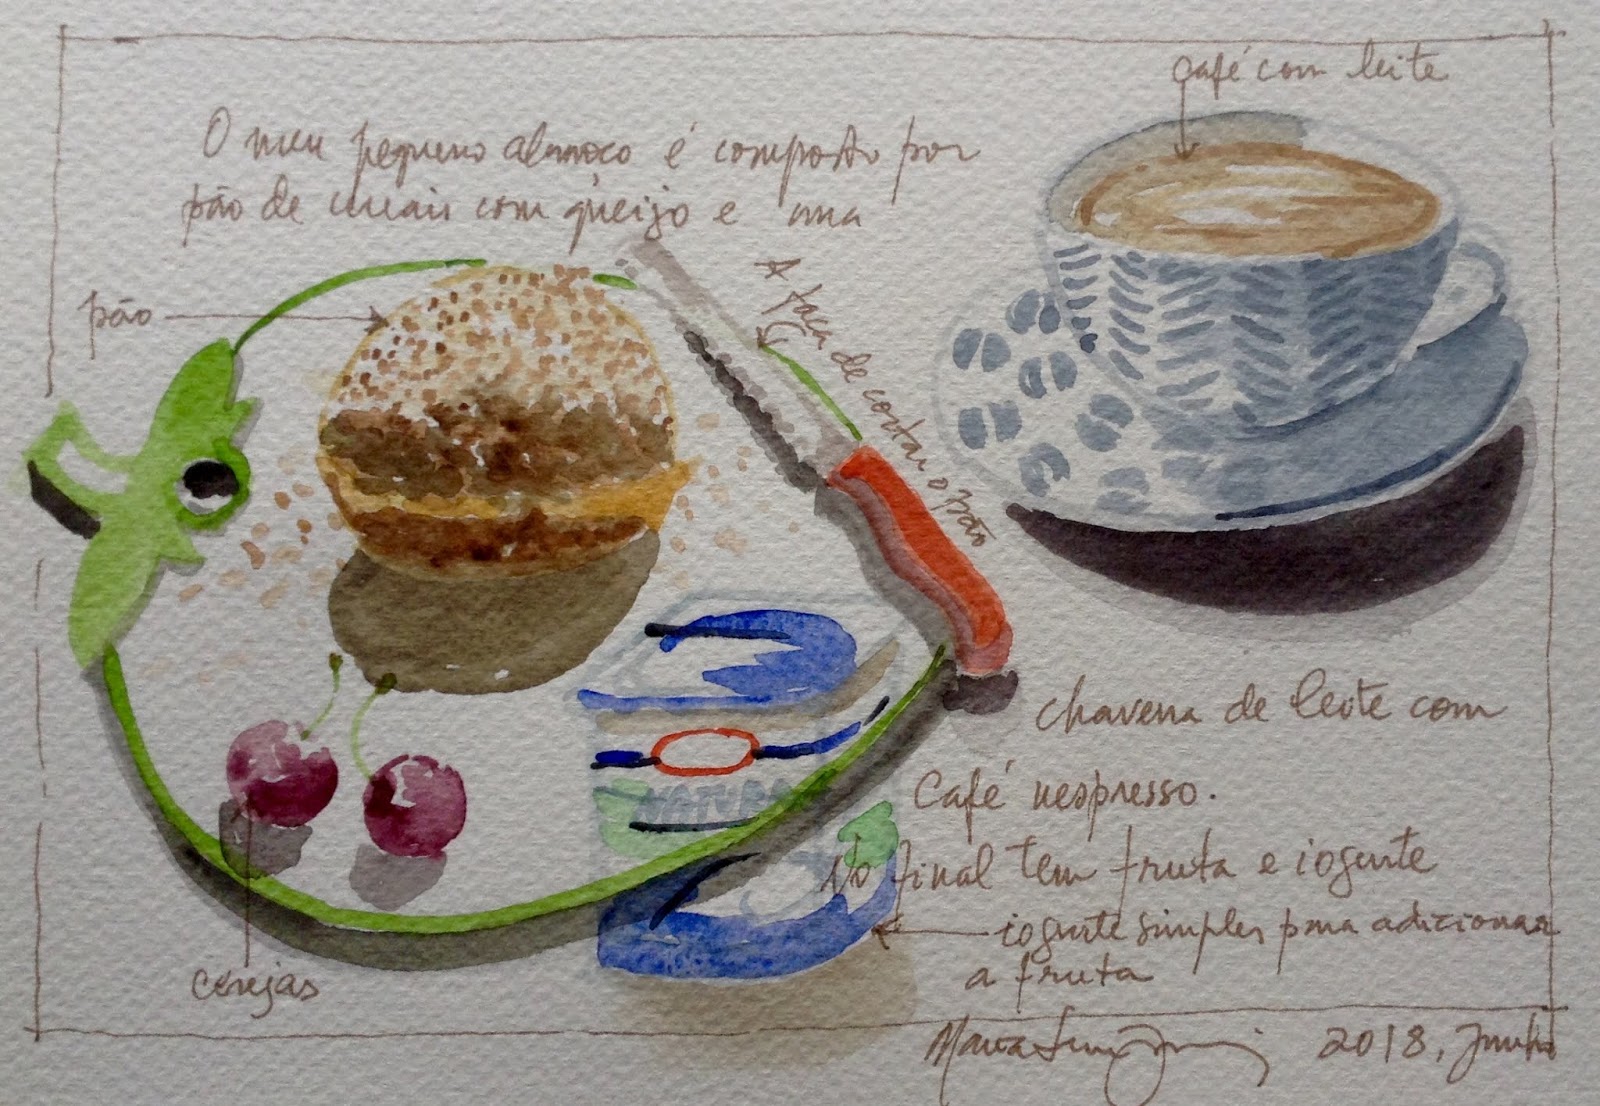 café com leite
O meu pequeno almoço é composto por
pão de cereais com queijo e uma
pão
A faca de cortar o pão
chavena de leite com
café nespresso.
No final tem fruta e iogurte
NATURA
iogurte simples para adicionar
a fruta
cerejas
Maria
2018, Junho